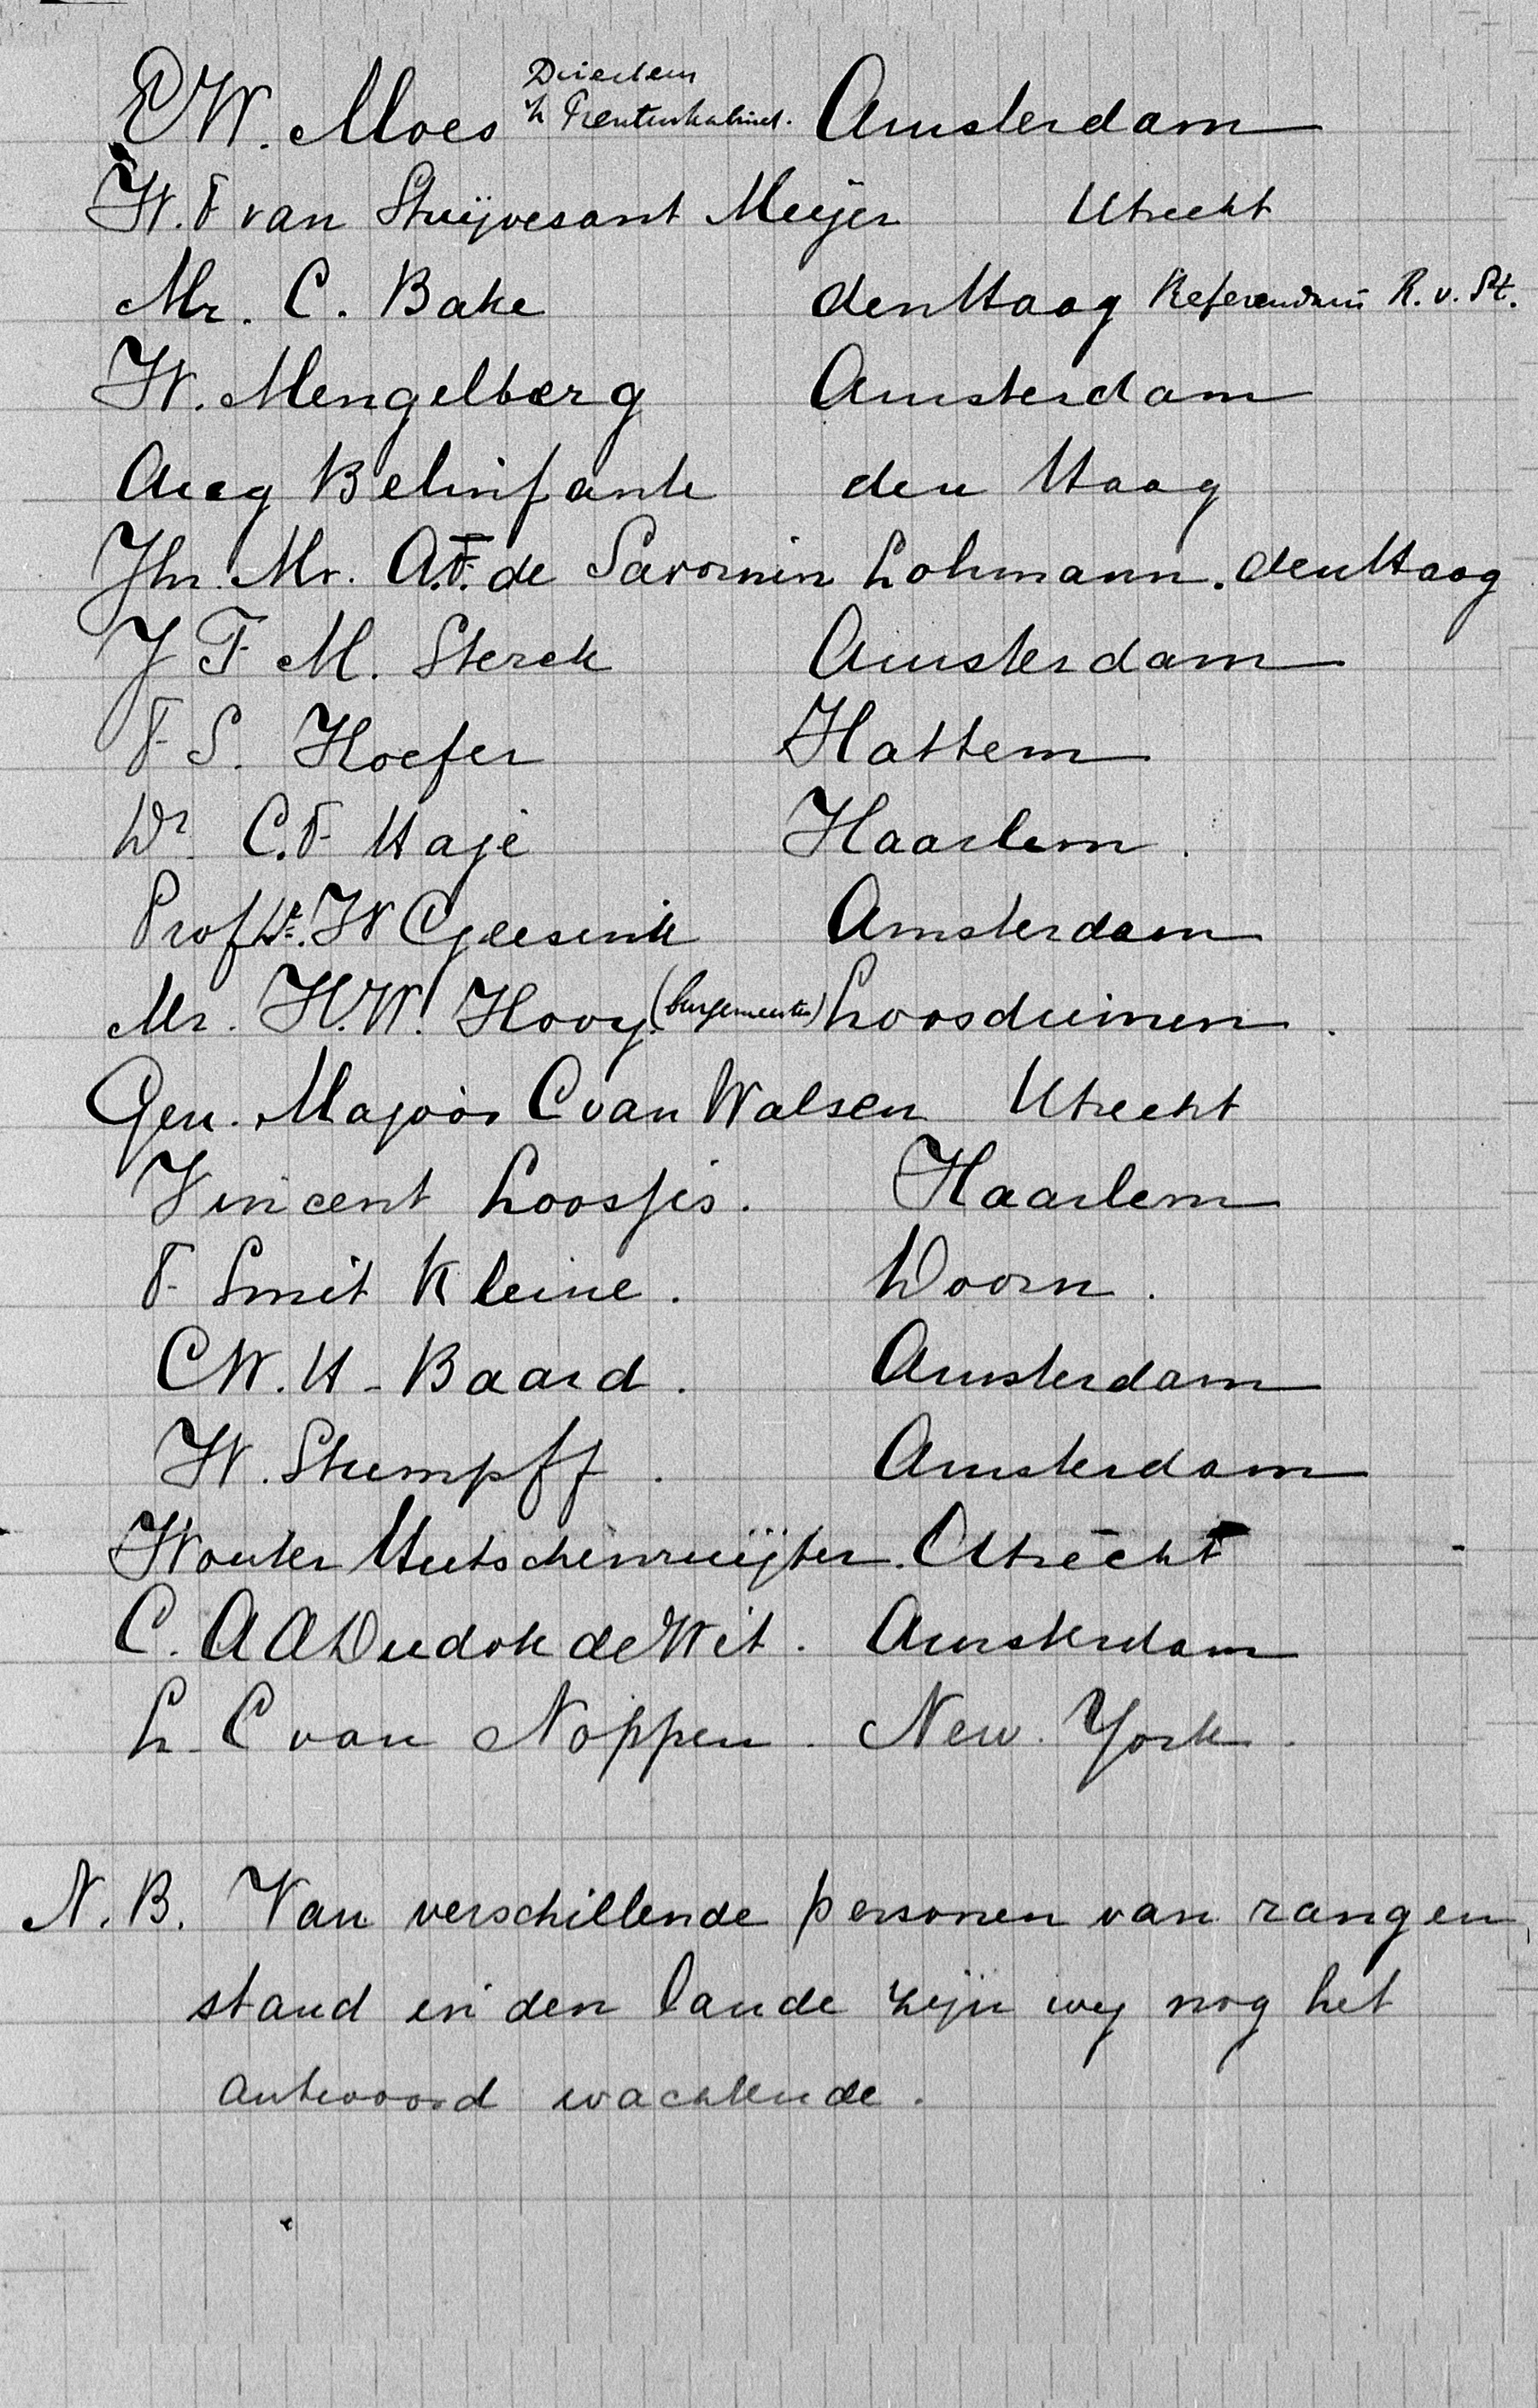 E W. Moes Directeur v/h Prentenkabinet. Amsterdam
W. F van Stuijvesant Meijer Utrecht
Mr. C. Bake den Haag Referendaris R. v. St.
W. Mengelberg Amsterdam
Aug Belinfante den Haag
Jhr. Mr. A.F. de Savornin Lohmann. den Haag
J F M. Sterck Amsterdam
F S. Hoefer Hattem
Dr. C.F Haje Haarlem.
Prof Dr. W Geesink Amsterdam
Mr. H.W. Hovy. (burgemeester) Loosduinen.
Gen. Majoor C van Walsen Utrecht
Vincent Loosjes. Haarlem
F Smit Kleine. Doorn.
C W. H - Baard. Amsterdam
W. Stumpff. Amsterdam
Wouter Hutschenruijter. Utrecht
C. A A Dudok de Wit. Amsterdam
L. C van Noppen. New. York.
N.B. Van verschillende personen van rang en
stand in den lande zijn wy nog het
antwoord wachtende.